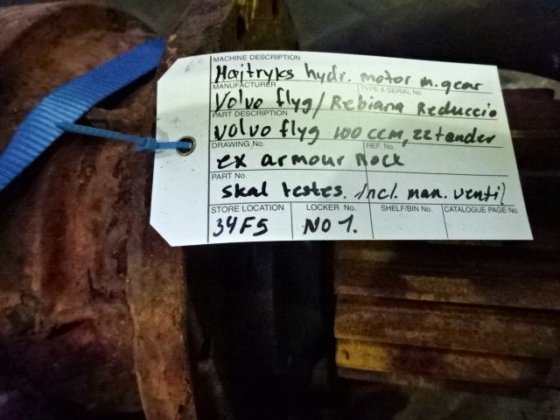 MACHINE DESCRIPTION
Højtryks hydr. motor m. gear
MANUFACTURER TYPE & SERIAL No.
Volvo flyg/Rebiana Reduccio
PART DESCRIPTION
Volvo flyg 100 ccm, 22 tander
DRAWING No. REF. No.
ex armour Rock
PART No.
skal testes. Incl. man. ventil
STORE LOCATION LOCKER No. SHELF/BIN No. CATALOGUE PAGE No.
34F5 NO 1.